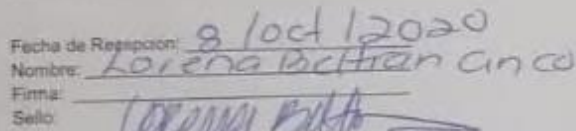 Fecha de Recepcion: 8 / oct / 2020
Nombre: Lorena Beltran Cinco
Firma:
Sello: